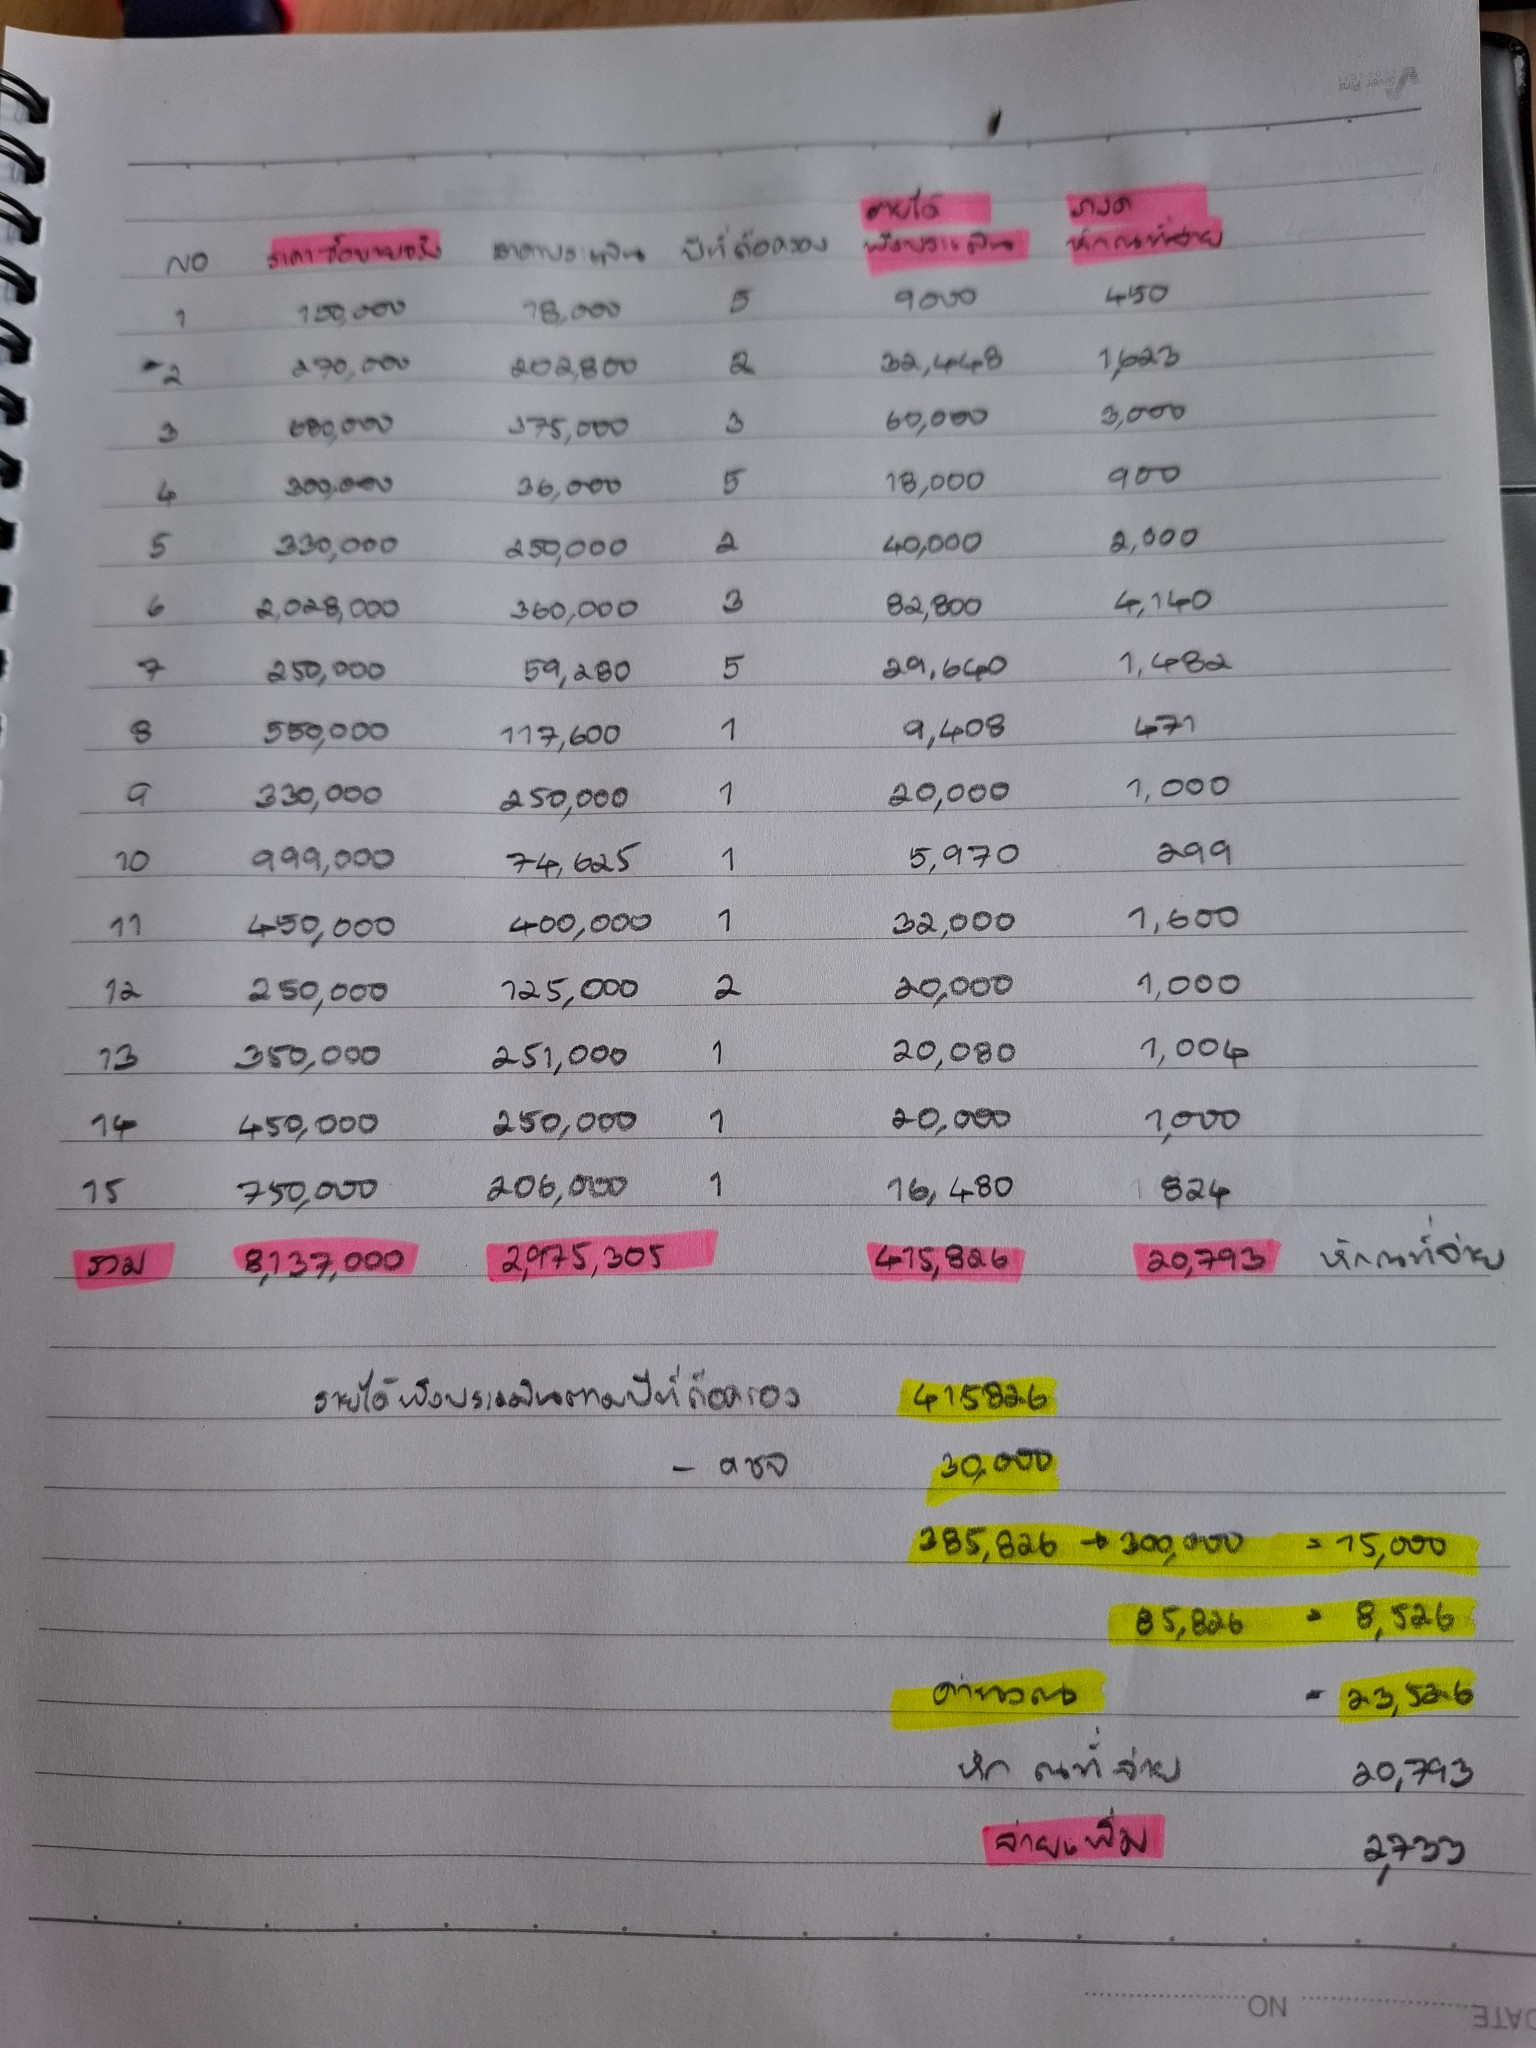 รายได้ ภงด
NO ราคาซื้อขายจริง ราคาประเมิน ปีที่ถือครอง พึงประเมิน หักณที่จ่าย
1 150,000 18,000 5 9000 450
2 270,000 202,800 2 32,448 1,623
3 680,000 375,000 3 60,000 3,000
4 300,000 36,000 5 18,000 900
5 330,000 250,000 2 40,000 2,000
6 2,028,000 360,000 3 82,800 4,140
7 250,000 59,280 5 29,640 1,482
8 550,000 117,600 1 9,408 471
9 330,000 250,000 1 20,000 1,000
10 999,000 74,625 1 5,970 299
11 450,000 400,000 1 32,000 1,600
12 250,000 125,000 2 20,000 1,000
13 350,000 251,000 1 20,080 1,004
14 450,000 250,000 1 20,000 1,000
15 750,000 206,000 1 16,480 824
รวม 8,137,000 2,975,305 415,826 20,793 หักณที่จ่าย
รายได้พึงประเมินตามปีที่ถือครอง 415826
- คชจ 30,000
385,826 → 300,000 = 15,000
85,826 = 8,526
คำนวณ = 23,526
หัก ณที่จ่าย 20,793
จ่ายเพิ่ม 2,733
NO
DATE